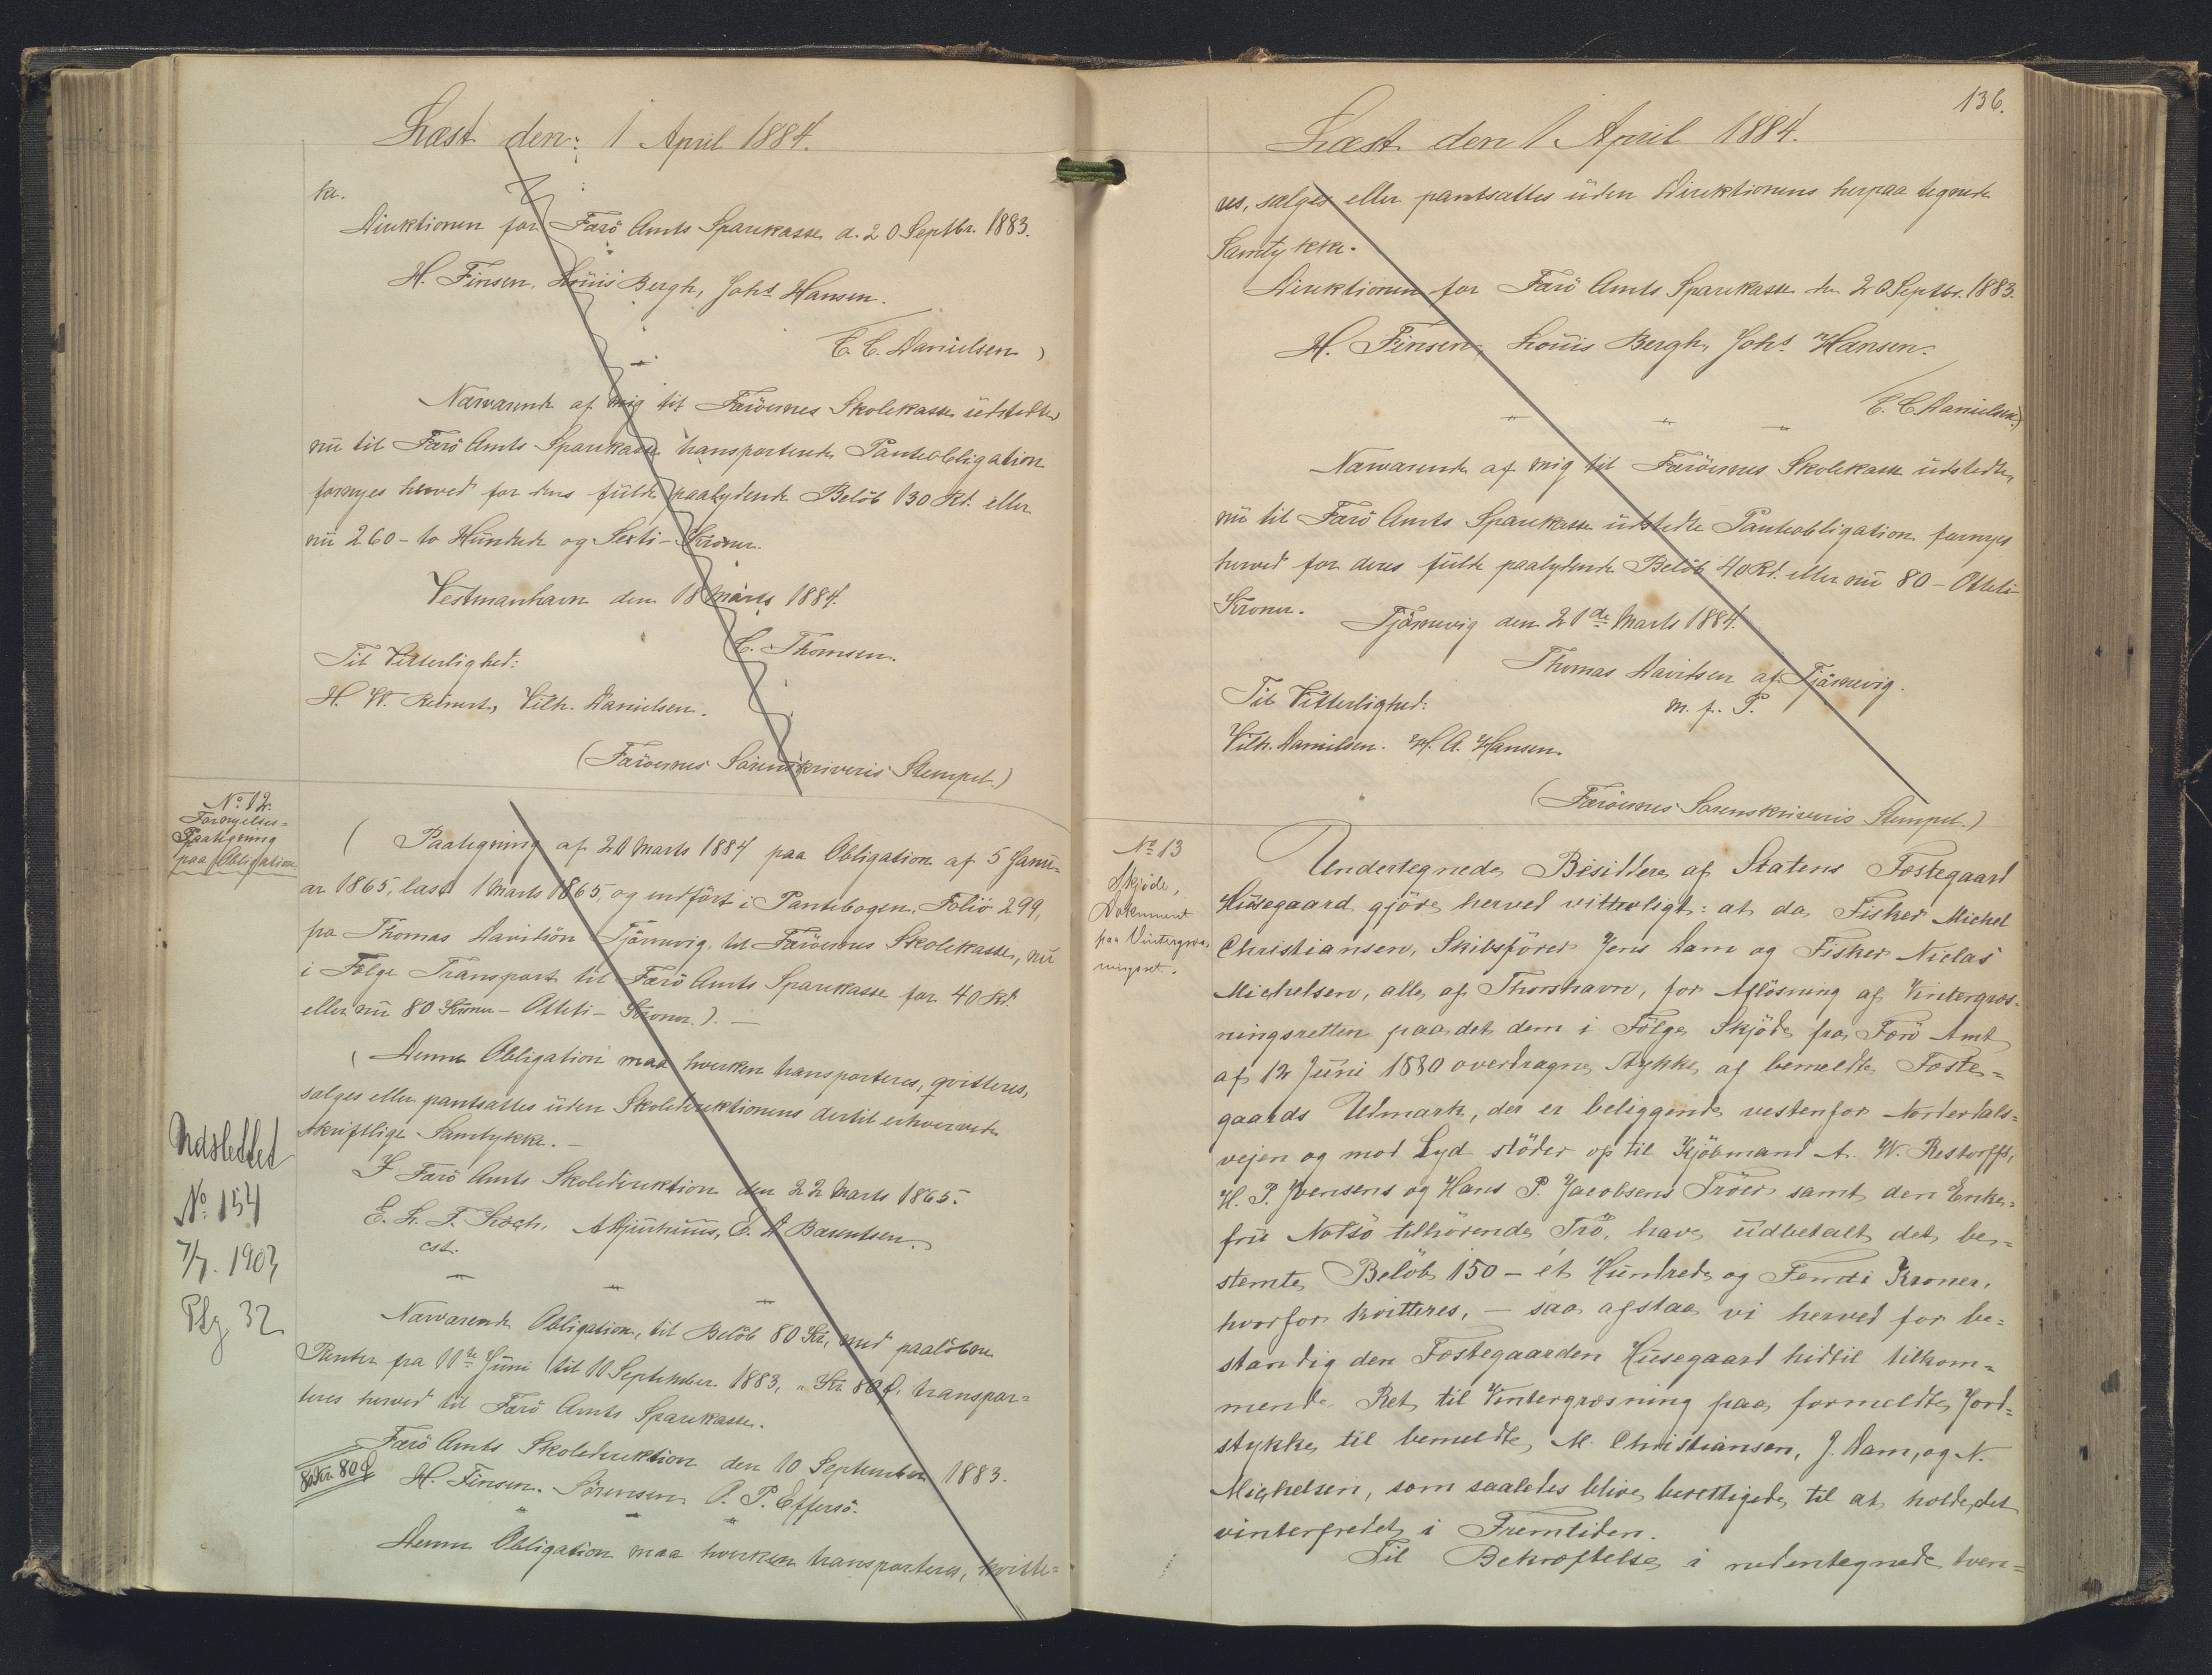 Læst den 1 April 1884.
ke.
Direktionen for Færö Amts Sparekasse d. 20 Septbr. 1883.
H. Finsen, Louis Bergh, Johs Hansen.
E. C. Danielsen)
Nærværende af mig til Færöernes Skolekasse udstedte
nu til Færö Amts Sparekasse transporterede Panteobligation
fornyes herved for dens fulde paalydende Belöb 130 Rd. eller
nu 260 - to Hundrede og Sexti - Kroner.
Vestmanhavn den 18 Marts 1884.
C. Thomsen.
Til Vitterlighed:
H. W. Reinert, Vilh. Danielsen.
(Færöernes Sorenskriveris Stempel.)
No 12.
Fornyelses-
Paategning
paa Obligation
( Paategning af 21 Marts 1884 paa Obligation af 5 Janu-
ar 1865, læst 1 Marts 1865, og indfört i Pantebogen, Folio 299,
fra Thomas Davidsön Tjörnevig, til Færöernes Skolekasse, nu
i Fölge Transport til Færö Amts Sparekasse for 40 Rd.
eller nu 80 Kroner - Otteti - Kroner.). -
( Denne Obligation maa hverken transporteres, qvitteres,
sælges eller pantsættes uden Skoledirektionens dertil erhvervede
skriftlige Samtykke. -
I Færö Amts Skoledirektion den 22 Marts 1865.
E. L. T. Koch, A Hjuthuus, C. A Bærentsen.
cst.
Nærværende Obligation, til Belöb 80 Kr, med paalöbne
Renter fra 11te Juni til 10 September 1883, " Kr 80 Ø, transpor=
teres herved til Færö Amts Sparekasse.
Færö Amts Skoledirektion den 10 September 1883.
80 Kr. 80 Ø
H. Finsen. Sörensen O. P. Effersö.
Denne Obligation maa hverken transporteres, kvitte=
Udslettet
No 154
7/7. 1903
Ptg. 32
136.
Læst den 1 April 1884.
res, sælges eller pantsættes uden Direktionens herpaa tegnede
Samtykke.
Direktionen for Færö Amts Sparekasse den 20 Septbr. 1883.
H. Finsen, Louis Bergh, Johs Hansen.
E. C. Danielsen.)
Nærværende af mig til Færöernes Skolekasse udstedte,
nu til Færö Amts Sparekasse udstedte Panteobligation fornyes
herved for deres fulde paalydende Belöb 40 Rd. eller nu 80 - Otteti
Kroner.
Tjörnevig den 21de Marts 1884.
Thomas Davidsen af Tjörnevig.
m. f. P.
Til Vitterlighed:
Vilh. Danielsen. H. A. Hansen.
(Færöernes Sorenskriveris Stempel.)
No 13
Skjöde,
Dokument
paa Vintergræs-
ningsret.
Undertegnede Besiddere af Statens Fæstegaard
Husegaard gjöre herved vitterligt: at da Fisker Michel
Christiansen, Skibsförer Jens Dam og Fisker Niclas
Michelsen, alle af Thorshavn, for Aflösning af Vintergræs-
ningsretten paa det dem i Fölge Skjöde fra Færö Amt
af 12 Juni 1880 overdragne Stykke af bemeldte Fæste=
gaards Udmark, der er beliggende vestenfor Norderdals=
vejen og mod Syd stöder op til Kjöbmand A. W. Restorffs,
H. P. Joensens og Hans P. Jacobsens Tröer samt den Enke=
fru Nolsö tilhörende Trö, have udbetalt det be=
stemte Belöb 150 - ét Hundrede og Femti Kroner,
hvorfor kvitteres, - saa afstaa vi herved for be=
standig den Fæstegaarden Husegaard hidtil tilkom=
mende Ret til Vintergræsning paa formeldte Jord=
stykke til bemeldte M. Christiansen, J. Dam, og N.
Michelsen, som saaledes blive berettigede til at holde det
vinterfredet i Fremtiden.
Til Bekræftelse i nedentegnede tven=